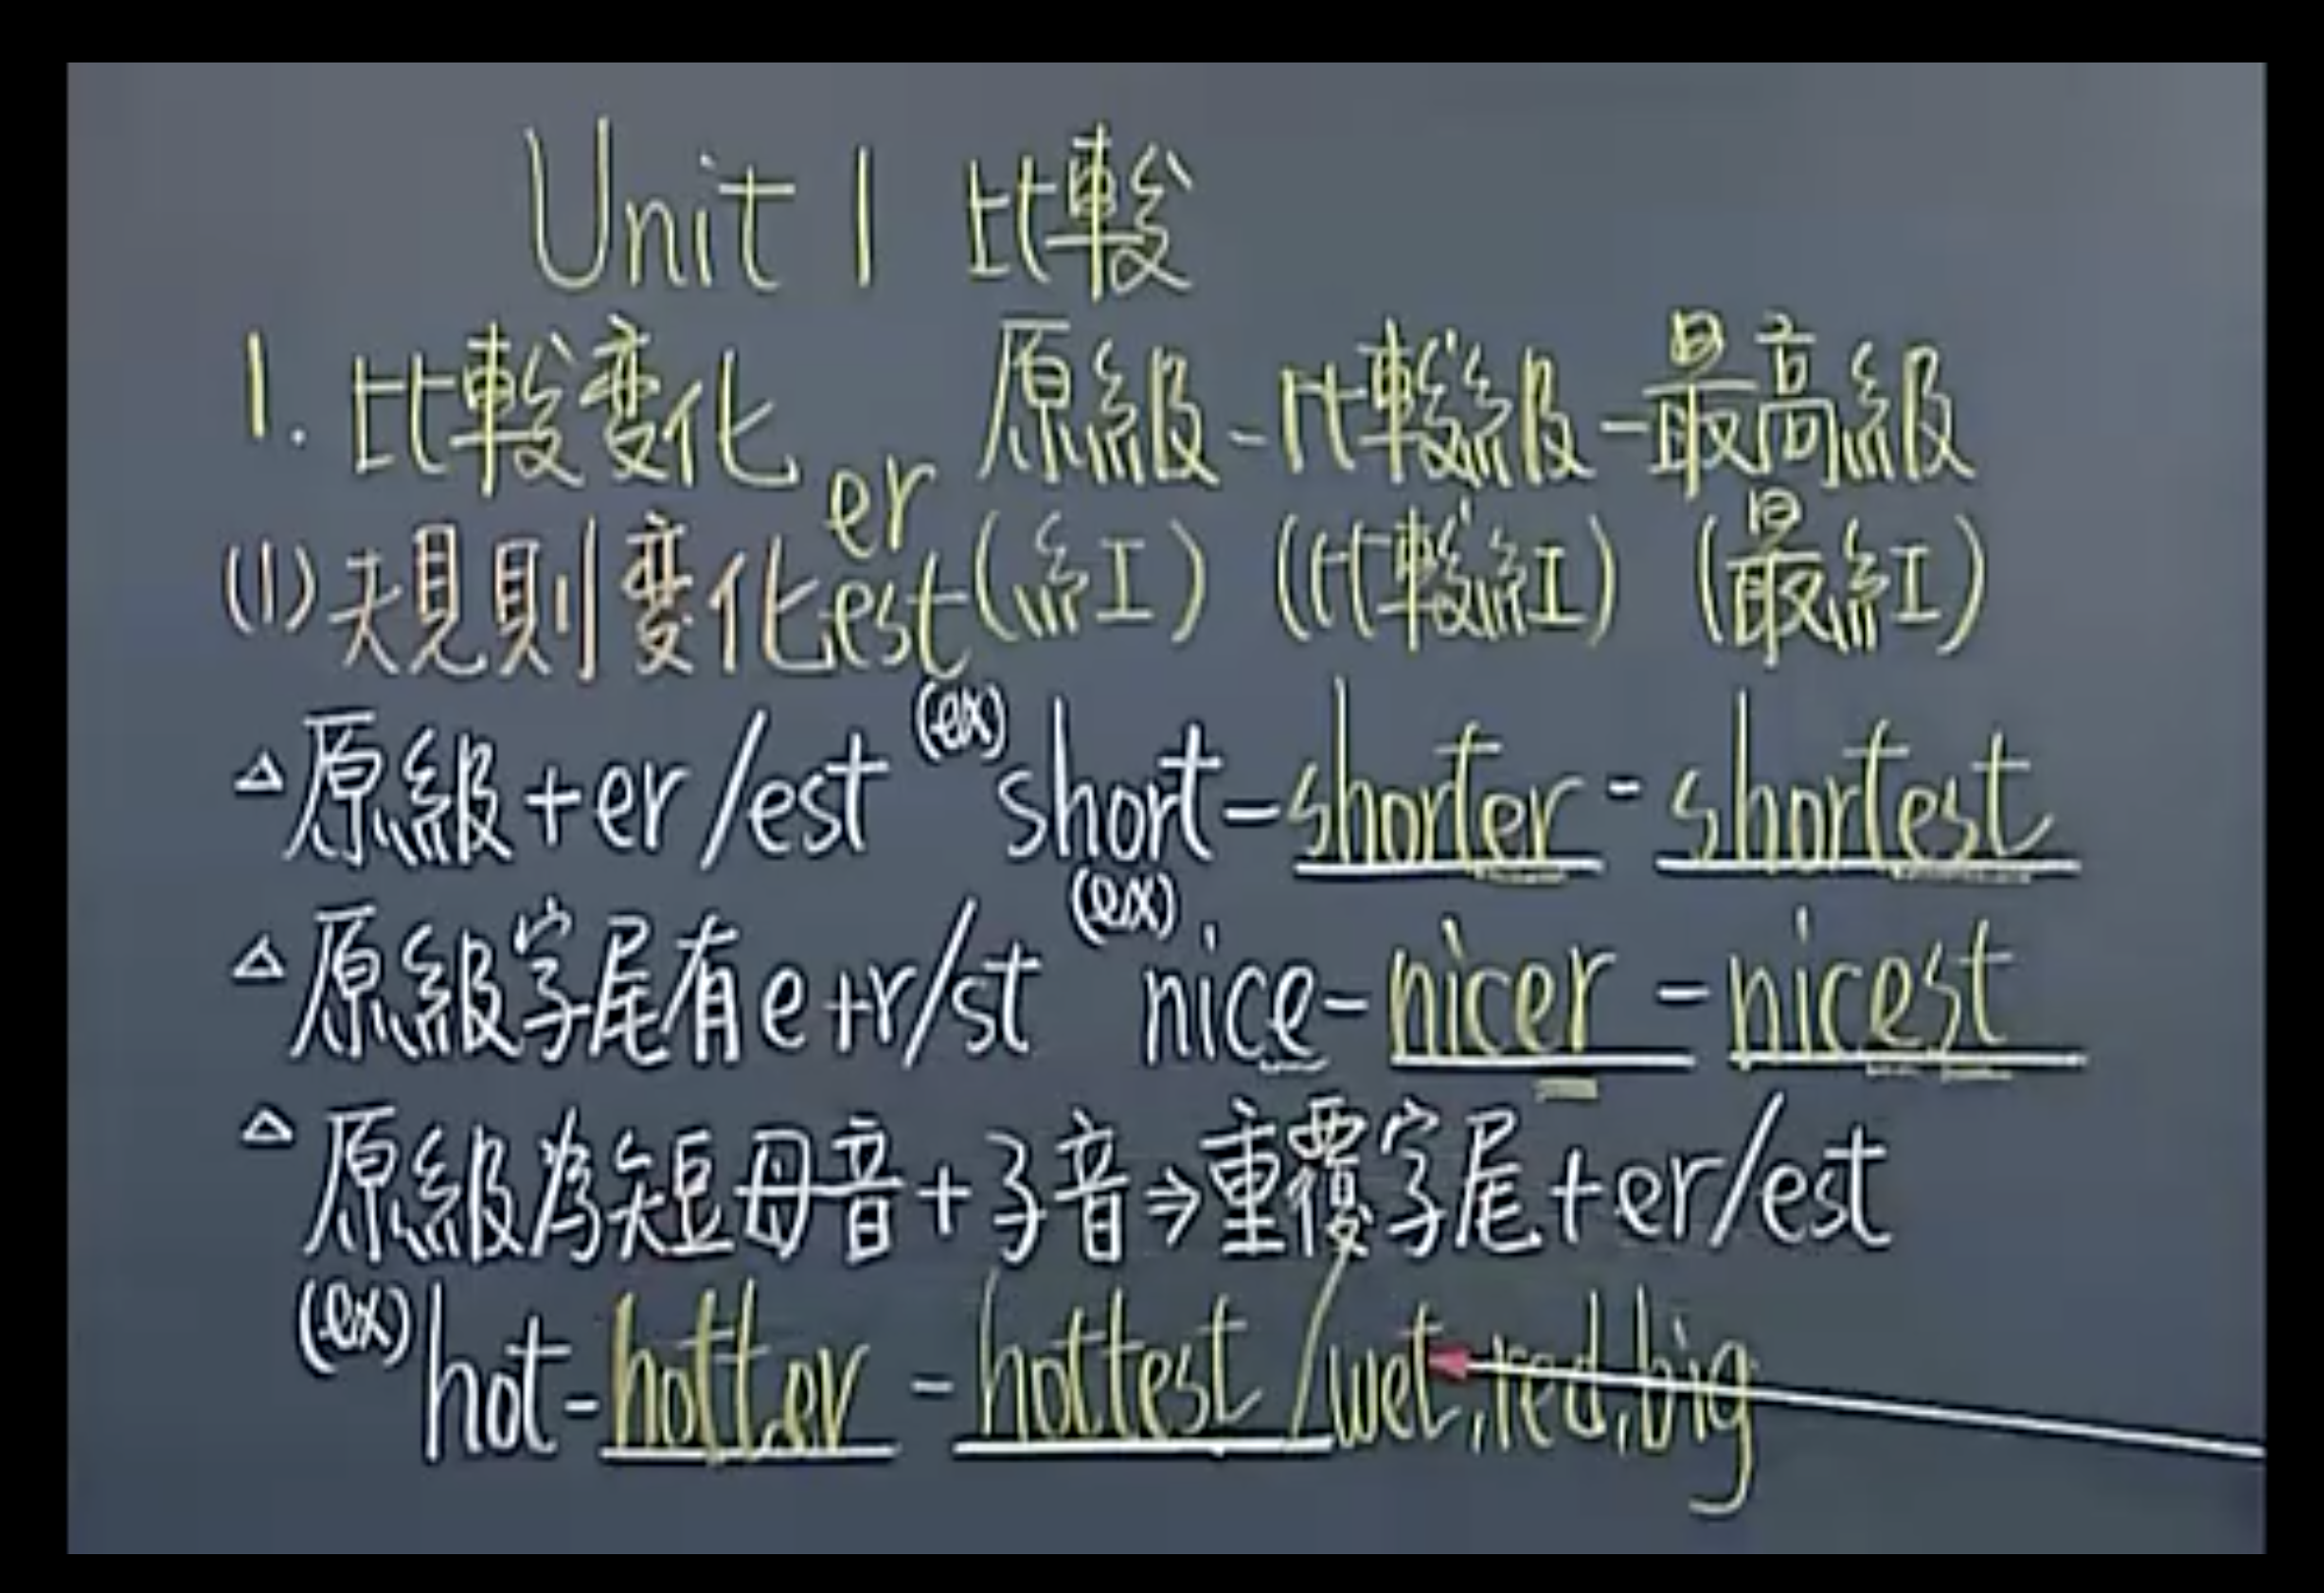 Unit 1 比較
1. 比較变化 原級-比較級-最高級
(1) 規則变化 er est (紅) (比較紅) (最紅)
△原級+er/est (ex) short-shorter-shortest
△原級字尾有e+r/st (ex) nice-nicer-nicest
△原級為短母音+子音⇒重覆字尾+er/est
(ex) hot-hotter-hottest/wet,red,big